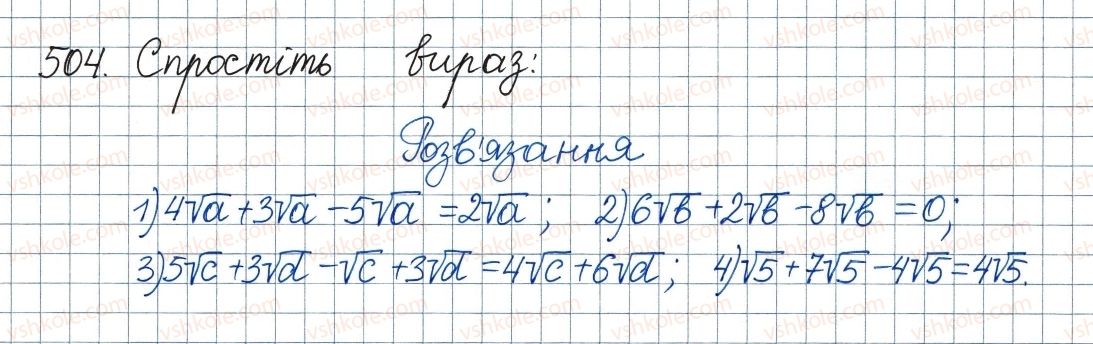 504. Спростіть вираз:
Розв'язання
1) 4√a + 3√a − 5√a = 2√a; 2) 6√b + 2√b − 8√b = 0;
3) 5√c + 3√d − √c + 3√d = 4√c + 6√d; 4) √5 + 7√5 − 4√5 = 4√5.